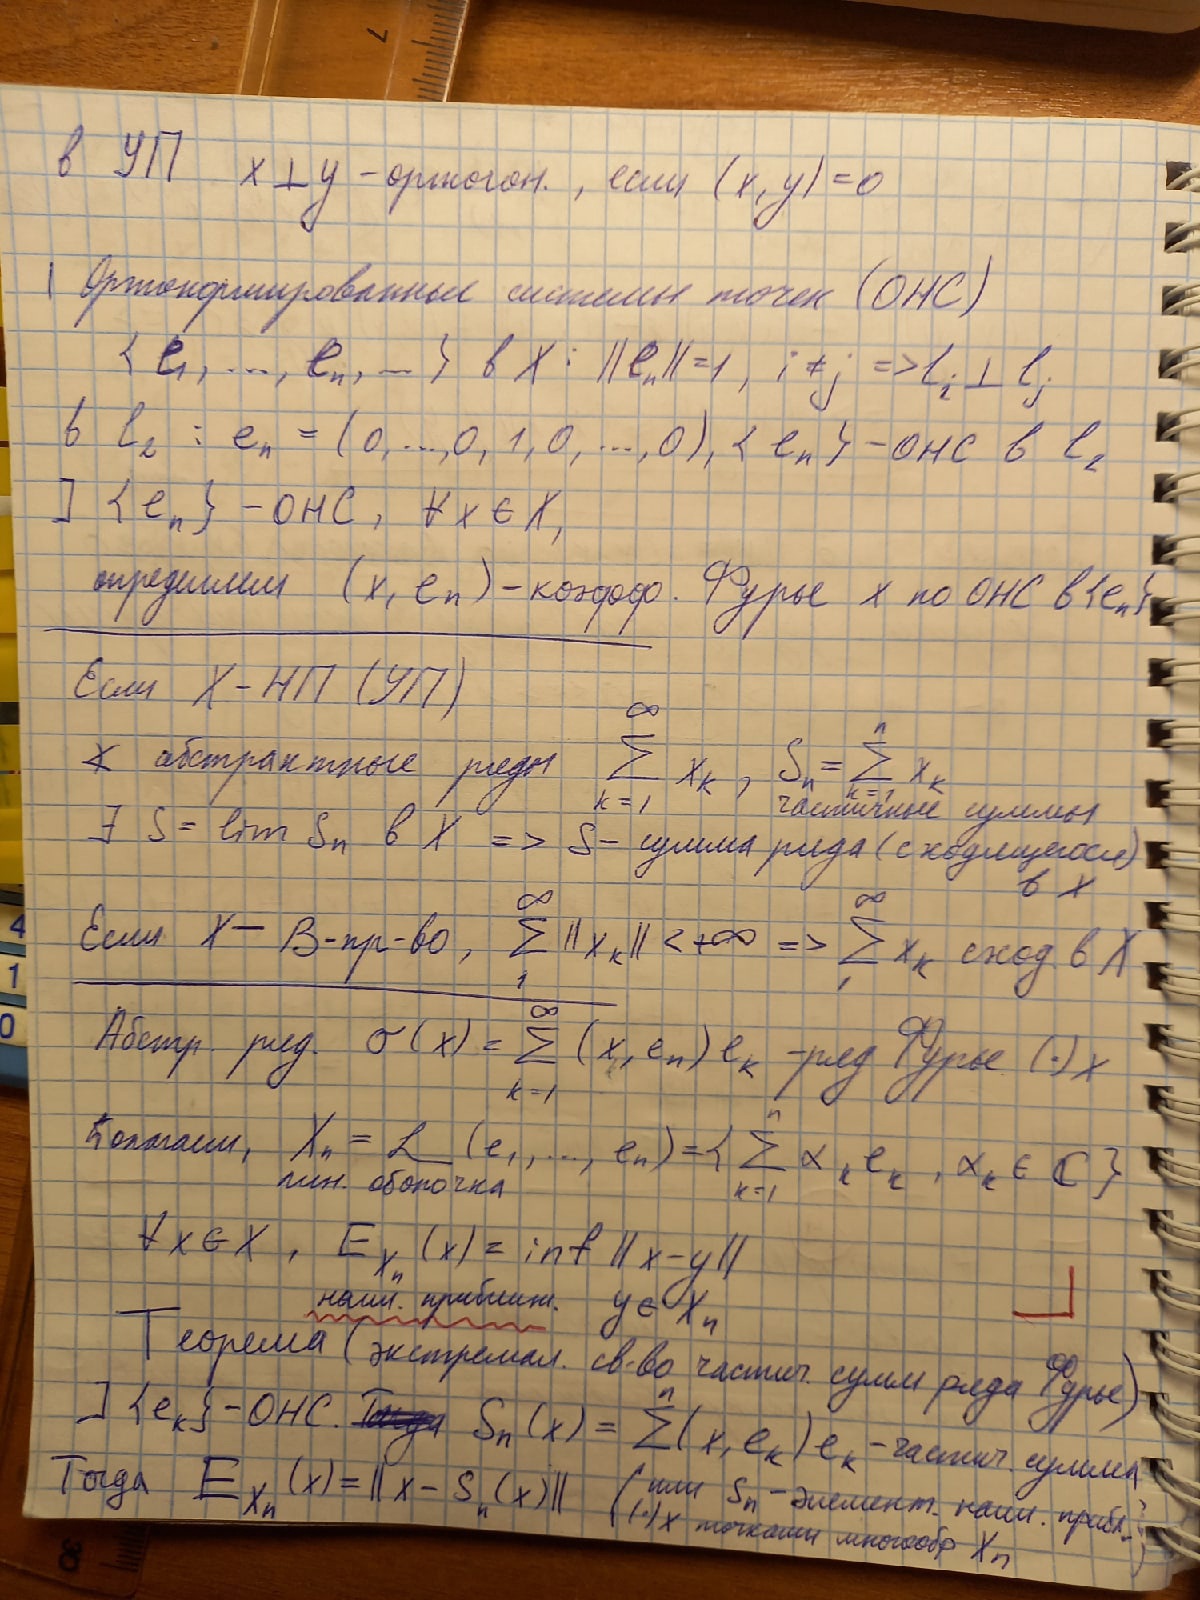 в УП x ⊥ y - ортогон., если (x, y) = 0
Ортонормированные системы точек (ОНС)
{e₁, ..., eₙ, ...} в X : ||eₙ|| = 1, i ≠ j => eᵢ ⊥ eⱼ
в l₂ : eₙ = (0, ..., 0, 1, 0, ..., 0), {eₙ} - ОНС в l₂
] {eₙ} - ОНС, ∀ x ∈ X,
определим (x, eₙ) - коэфф. Фурье x по ОНС в {eₙ}
Если X - НП (УП)
∢ абстрактные ряды ∑_{k=1}^{∞} xₖ, Sₙ = ∑_{k=1}^{n} xₖ
частичные суммы
∃ S = lim Sₙ в X => S - сумма ряда (сходящегося)
в X
Если X - B-пр-во, ∑_{1}^{∞} ||xₖ|| < +∞ => ∑_{1}^{∞} xₖ сход. в X
Абстр. ряд. σ(x) = ∑_{k=1}^{∞} (x, eₙ) eₖ - ряд Фурье (·) x
Полагаем, Xₙ = L (e₁, ..., eₙ) = {∑_{k=1}^{n} αₖ eₖ, αₖ ∈ ℂ}
лин. оболочка
∀ x ∈ X, E_{Xₙ}(x) = inf ||x - y||
наил. приближ. y ∈ Xₙ
Теорема (экстремал. св-во частич. сумм ряда Фурье)
] {eₖ} - ОНС. Sₙ(x) = ∑^{n} (x, eₖ) eₖ - частич. сумма
Тогда E_{Xₙ}(x) = ||x - Sₙ(x)|| (или Sₙ - элемент. наил. прибл.
(·) x точками многообр Xₙ)